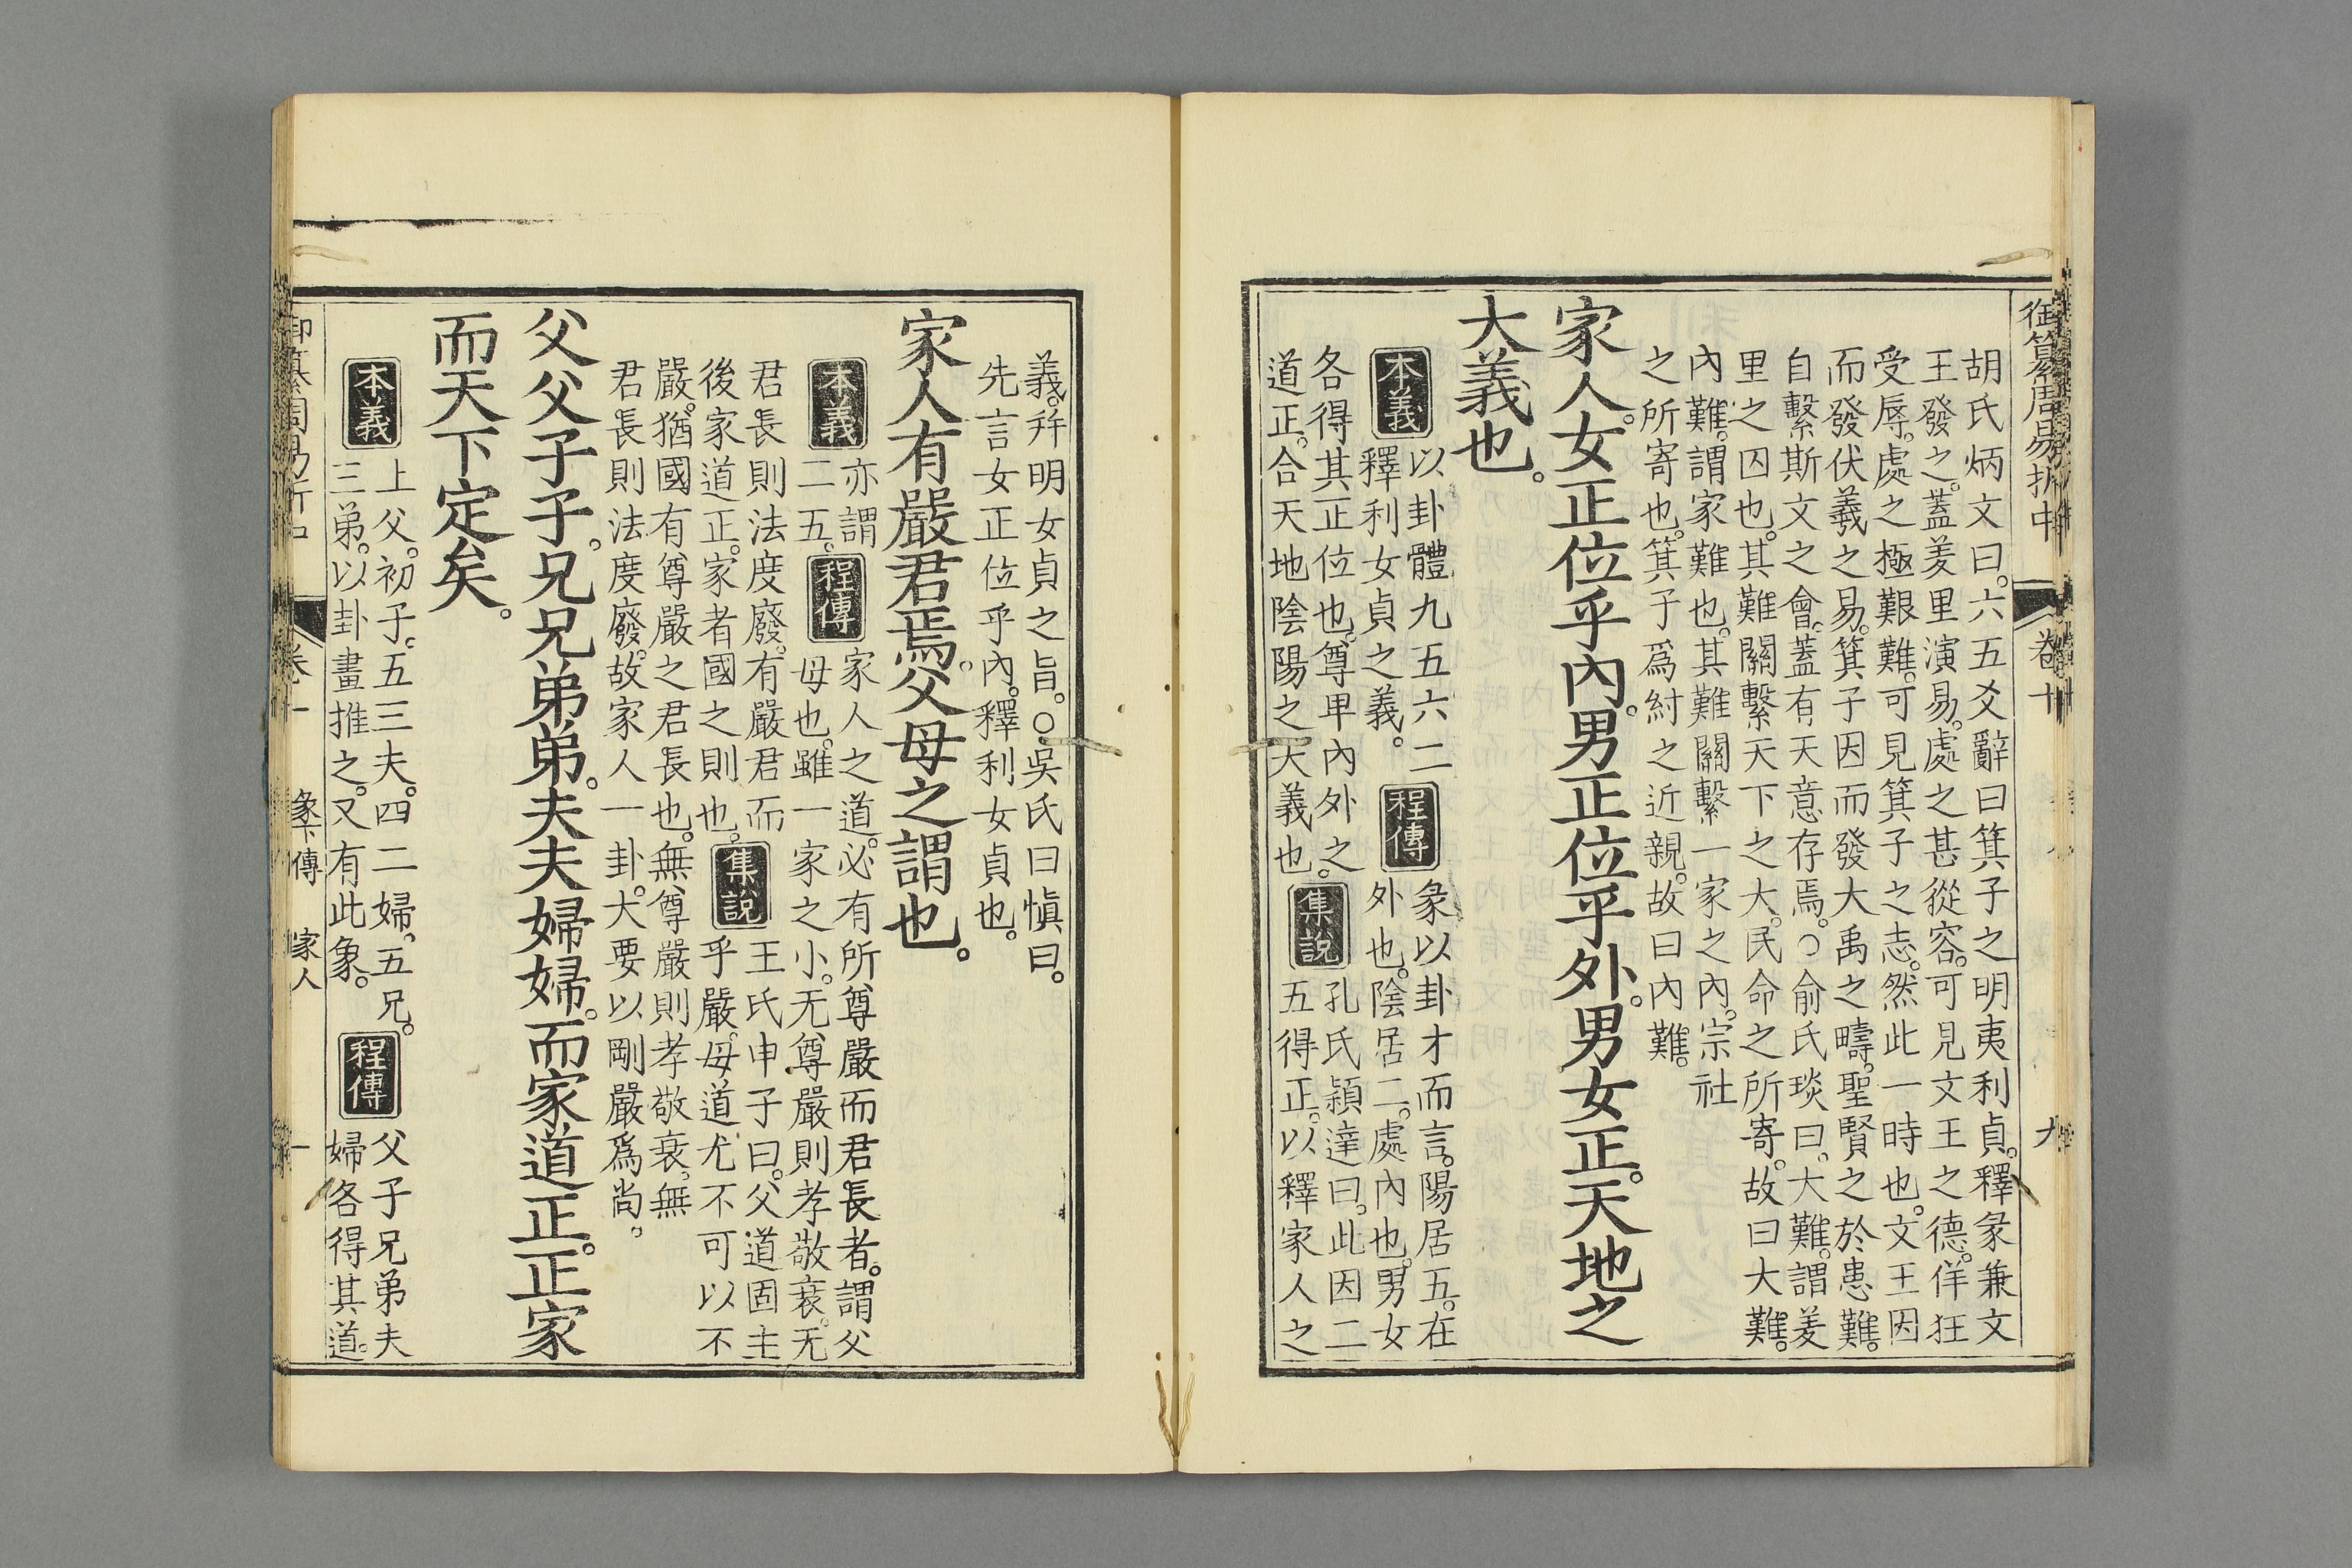 御纂周易折中 卷十 九
胡氏炳文曰。六五爻辭曰箕子之明夷利貞。釋彖兼文
王發之。蓋羑里演易。處之甚從容。可見文王之德。佯狂
受辱。處之極艱難。可見箕子之志。然此一時也。文王因
而發伏羲之易。箕子因而發大禹之疇。聖賢之於患難。
自繫斯文之會。蓋有天意存焉。○俞氏琰曰。大難。謂羑
里之囚也。其難關繫天下之大。民命之所寄。故曰大難。
內難。謂家難也。其難關繫一家之內。宗社
之所寄也。箕子爲紂之近親。故曰內難。
家人。女正位乎內。男正位乎外。男女正。天地之
大義也。
本義 以卦體九五六二
釋利女貞之義。
程傳 彖以卦才而言。陽居五。在
外也。陰居二。處內也。男女
各得其正位也。尊卑內外之
道正。合天地陰陽之大義也。
集說 孔氏穎達曰。此因二
五得正。以釋家人之
義。幷明女貞之旨。○吳氏曰愼曰。
先言女正位乎內。釋利女貞也。
家人有嚴君焉。父母之謂也。
本義 亦謂
二五。
程傳 家人之道。必有所尊嚴而君長者。謂父
母也。雖一家之小。无尊嚴則孝敬衰。无
君長則法度廢。有嚴君而
後家道正。家者國之則也。
集說 王氏申子曰。父道固主
乎嚴。母道尤不可以不
嚴。猶國有尊嚴之君長也。無尊嚴則孝敬衰。無
君長則法度廢。故家人一卦。大要以剛嚴爲尚。
父父子子。兄兄弟弟。夫夫婦婦。而家道正。正家
而天下定矣。
本義 上父。初子。五三夫。四二婦。五兄。
三弟。以卦畫推之。又有此象。
程傳 父子兄弟夫
婦各得其道。
彖下傳 家人